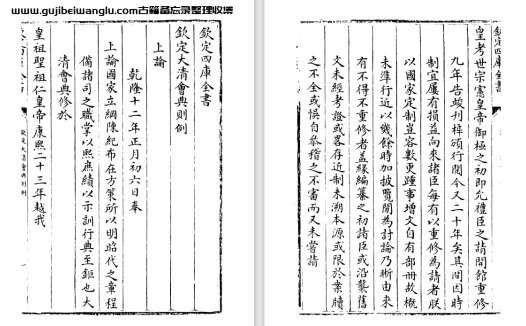 www.gujibeiwanglu.com古籍备忘录整理收集
欽定四庫全書
欽定大清會典則例
上諭
乾隆十二年正月六日奉
上諭國家立綱陳紀布在方策所以明昭代之章程
備諸司之職掌以熙庶績以示訓行典至鉅也大
清會典修於
皇祖聖祖仁皇帝康熙二十三年越我
欽定大清會典則例
欽定四庫全書
皇考世宗憲皇帝御極之初即允禮臣之請開館重修
九年告竣刊梓頒行閱今又二十年矣其間因時
制宜屢有損益向來諸臣每有以重修為請者朕
以國家定制豈容數更踵事增文自有部冊故概
未準行近以幾餘時加披覽間為討論乃晰由來
有不得不重修者蓋緣編纂之初諸臣或沿襲舊
文未經考證或畧存近制未溯本源或限於案牘
之不全或悞自參稽之不審而又未嘗請